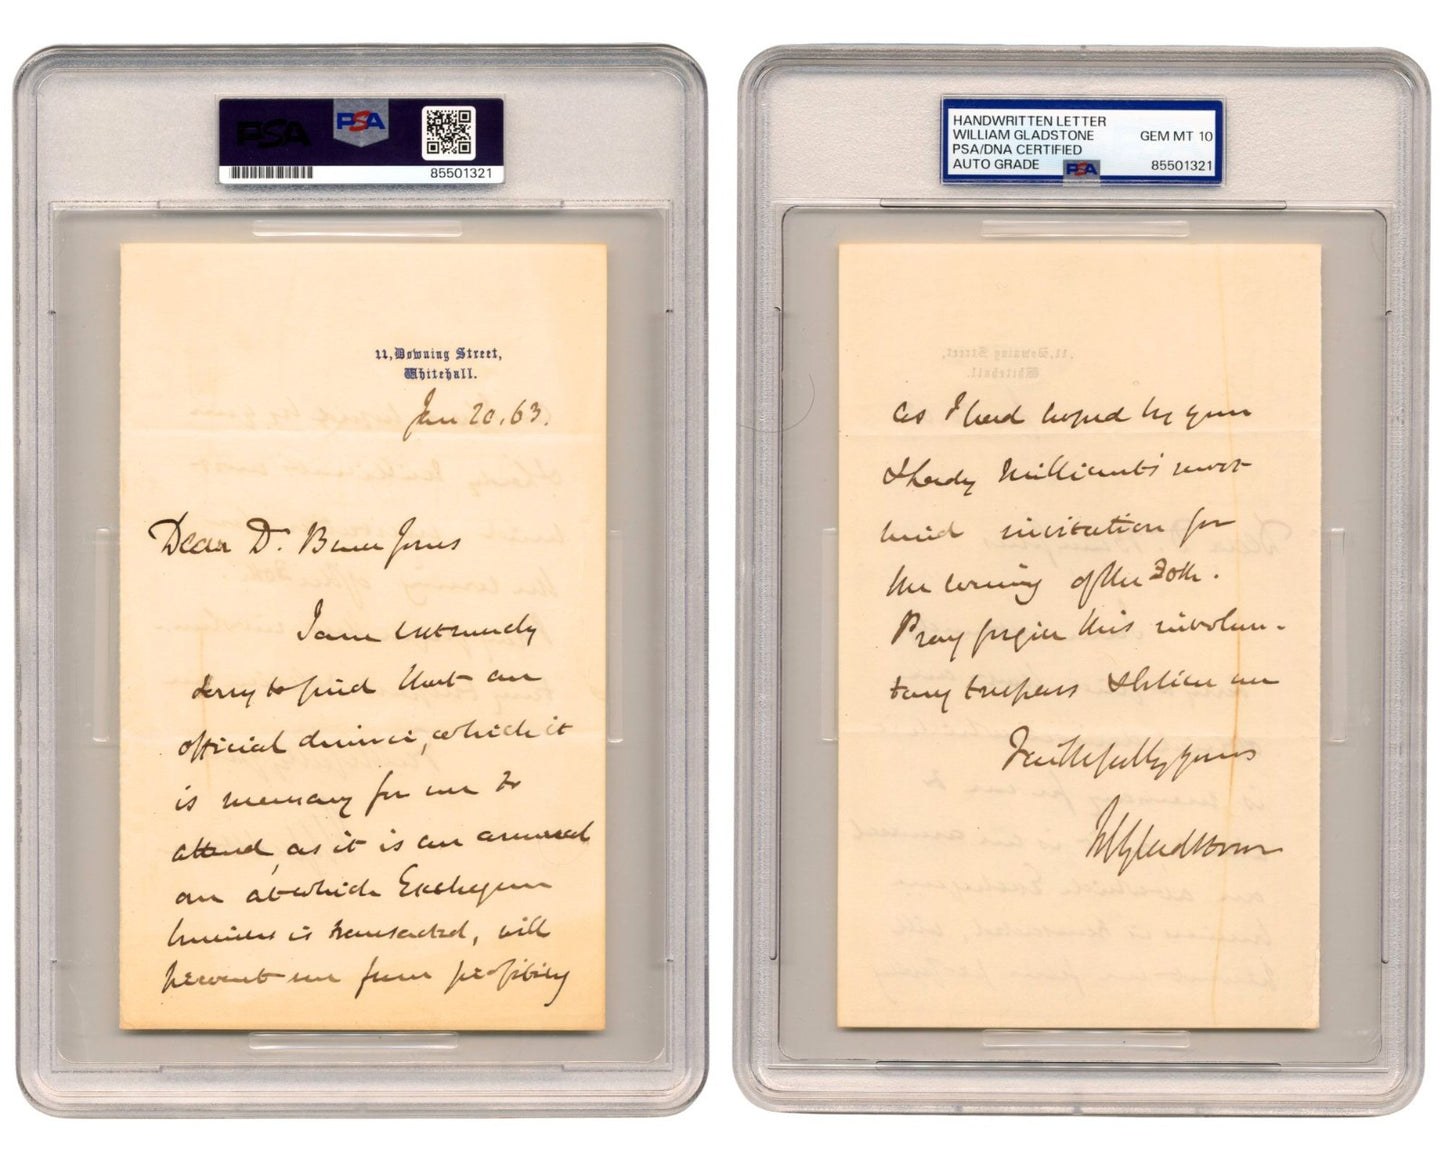 PSA
PSA
85501321
11, Downing Street,
Whitehall.
Jan 20. 63.
Dear Dr. Bence Jones
I am extremely
sorry to find that an
official dinner, which it
is necessary for me to
attend, as it is an annual
one at which Exchequer
business is transacted, will
prevent me from profiting
HANDWRITTEN LETTER
WILLIAM GLADSTONE
PSA/DNA CERTIFIED
AUTO GRADE
GEM MT 10
PSA
85501321
as I had hoped by your
& Lady Millicent's most
kind invitation for
the evening of the 30th.
Pray forgive this involun-
tary trespass & believe me
Faithfully yours
WEGladstone